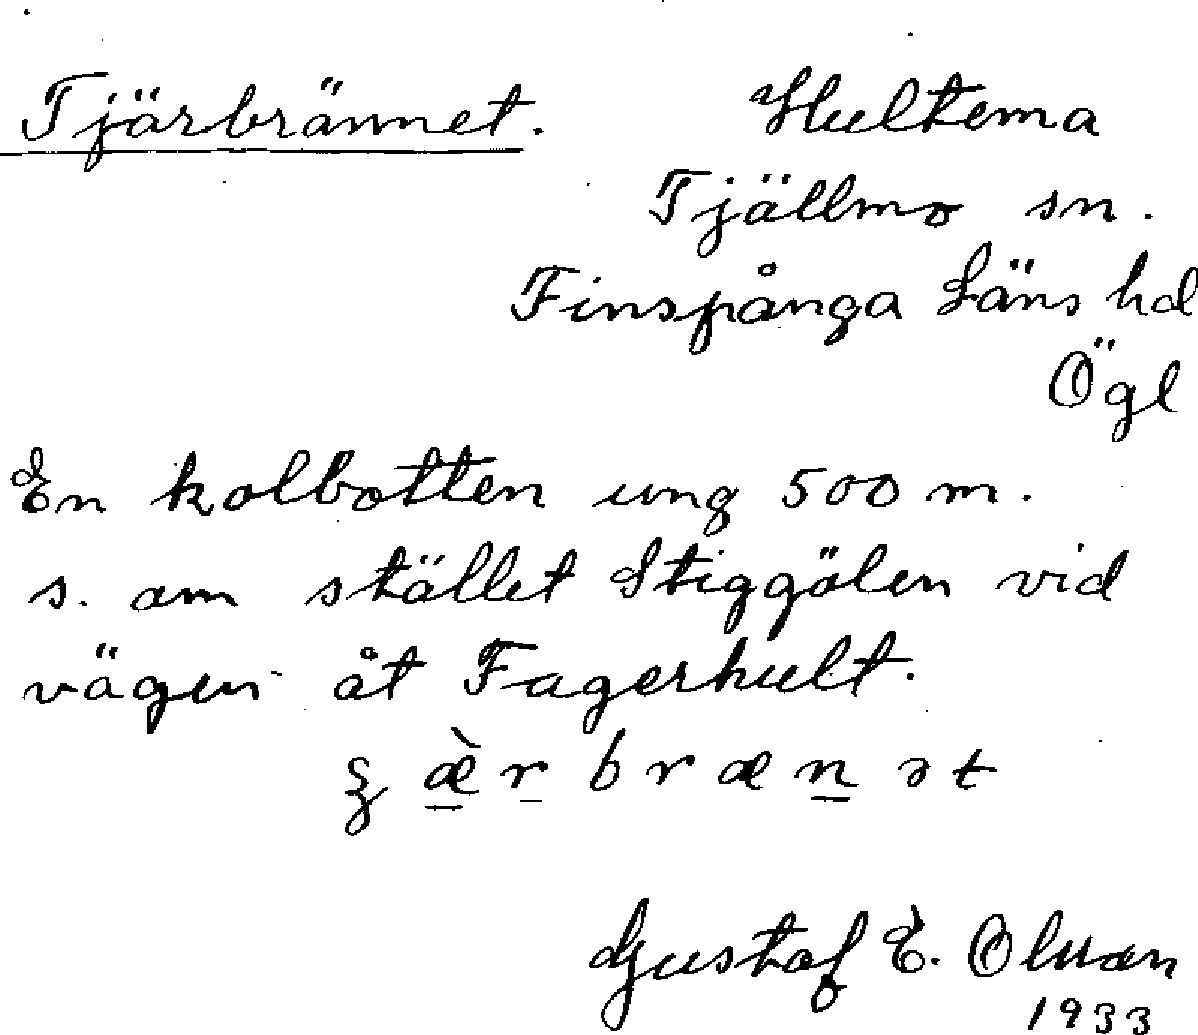 Tjärbrännet. Hultema
Tjällmo sn.
Finspånga Läns hd
Ögl
En kolbotten ung 500 m.
s. om stället Stiggölen vid
vägen åt Fagerhult.
bræ̱nət
Gustaf E. Olsson
1933